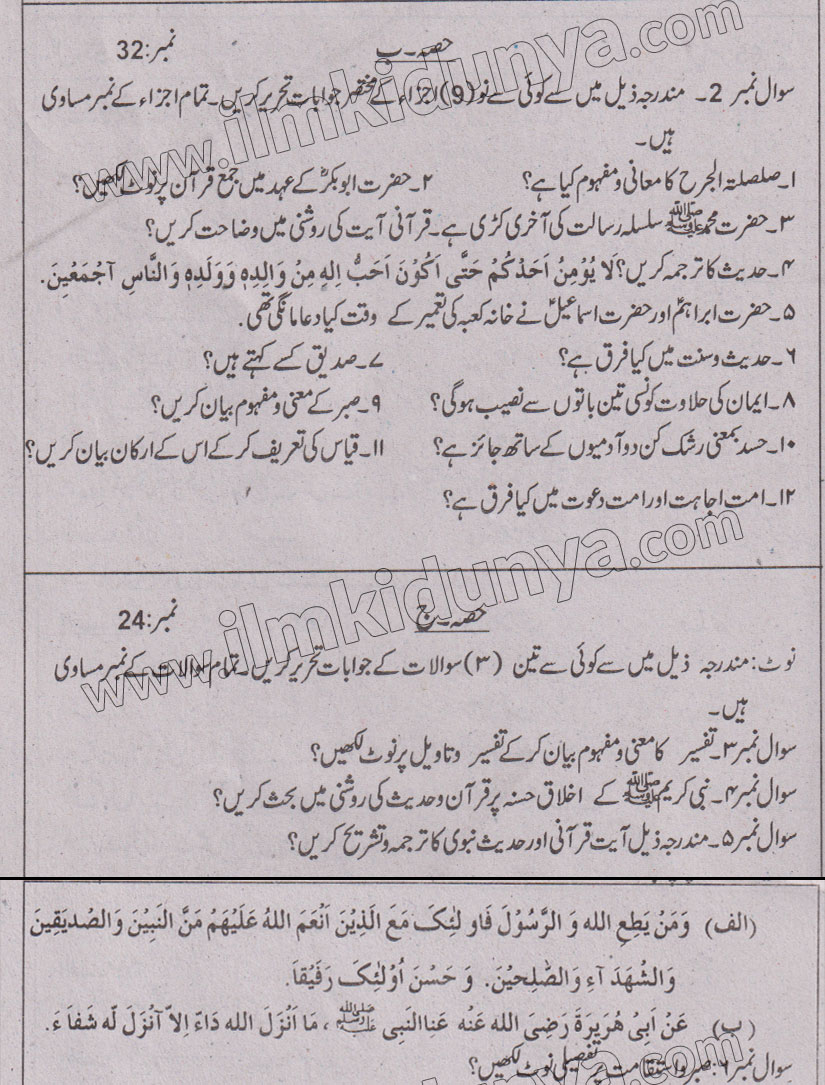 حصہ۔ب نمبر:32
سوال نمبر 2۔ مندرجہ ذیل میں سے کوئی سے نو (9) اجزاء کے مختصر جوابات تحریر کریں۔ تمام اجزاء کے نمبر مساوی
ہیں۔
۱۔ صلصلۃ الجرح کا معانی و مفہوم کیا ہے؟ ۲۔ حضرت ابوبکرؓ کے عہد میں جمع قرآن پر نوٹ لکھیں؟
۳۔ حضرت محمد ﷺ سلسلہ رسالت کی آخری کڑی ہے۔ قرآنی آیت کی روشنی میں وضاحت کریں؟
۴۔ حدیث کا ترجمہ کریں؟ لَا يُوْمِنُ اَحَدُكُمْ حَتّٰى اَكُوْنَ اَحَبُّ اِلهٖ مِنْ وَالِدِهٖ وَوَلَدِهٖ وَالنَّاسِ اَجْمَعِيْنَ.
۵۔ حضرت ابراہمؑ اور حضرت اسماعیلؑ نے خانہ کعبہ کی تعمیر کے وقت کیا دعا مانگی تھی.
۶۔ حدیث و سنت میں کیا فرق ہے؟ ۷۔ صدیق کسے کہتے ہیں؟
۸۔ ایمان کی حلاوت کونسی تین باتوں سے نصیب ہوگی؟ ۹۔ صبر کے معنی و مفہوم بیان کریں؟
۱۰۔ حسد بمعنی رشک کن دو آدمیوں کے ساتھ جائز ہے؟ ۱۱۔ قیاس کی تعریف کر کے اس کے ارکان بیان کریں؟
۱۲۔ امت اجابت اور امت دعوت میں کیا فرق ہے؟
حصہ۔ج نمبر:24
نوٹ: مندرجہ ذیل میں سے کوئی سے تین (۳) سوالات کے جوابات تحریر کریں۔ تمام سوالات کے نمبر مساوی
ہیں۔
سوال نمبر ۳۔ تفسیر کا معنی و مفہوم بیان کر کے تفسیر و تاویل پر نوٹ لکھیں؟
سوال نمبر ۴۔ نبی کریم ﷺ کے اخلاق حسنہ پر قرآن و حدیث کی روشنی میں بحث کریں؟
سوال نمبر ۵۔ مندرجہ ذیل آیت قرآنی اور حدیث نبوی کا ترجمہ و تشریح کریں؟
(الف) وَمَنْ يَطِعِ الله وَ الرَّسُوْلَ فَاو لٰئِکَ مَعَ الَّذِيْنَ اَنْعَمَ اللهُ عَلَيْهِمْ مَّنَ النَّبِيْنَ وَالصُّدِيَقِينَ
وَالشُّهَدَ آءِ وَالصّٰلِحِيْنَ. وَ حَسُنَ اُوْلٰئِکَ رَفَيْقاً.
(ب) عَنْ اَبِیْ هُرَيرَةَ رَضِیَ الله عَنْه عَنِ النَبِی ﷺ ، مَا اَنْزَلَ الله دَاءً اِلاّ آنْزَلَ لّه شَفاَءَ.
سوال نمبر ۶: صبر و استقامت پر تفصیلی نوٹ لکھیں؟
www.ilmkidunya.com
www.ilmkidunya.com